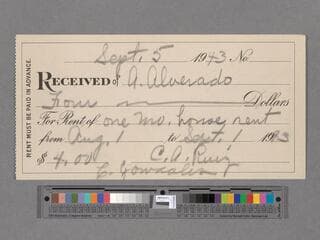 Sept. 5 1943 No
RECEIVED of A. Alverado
Four Dollars
For Rent of one mo. house rent
from Aug. 1 to Sept. 1 1943
$ 4.00 C. A. Ruiz
RENT MUST BE PAID IN ADVANCE.